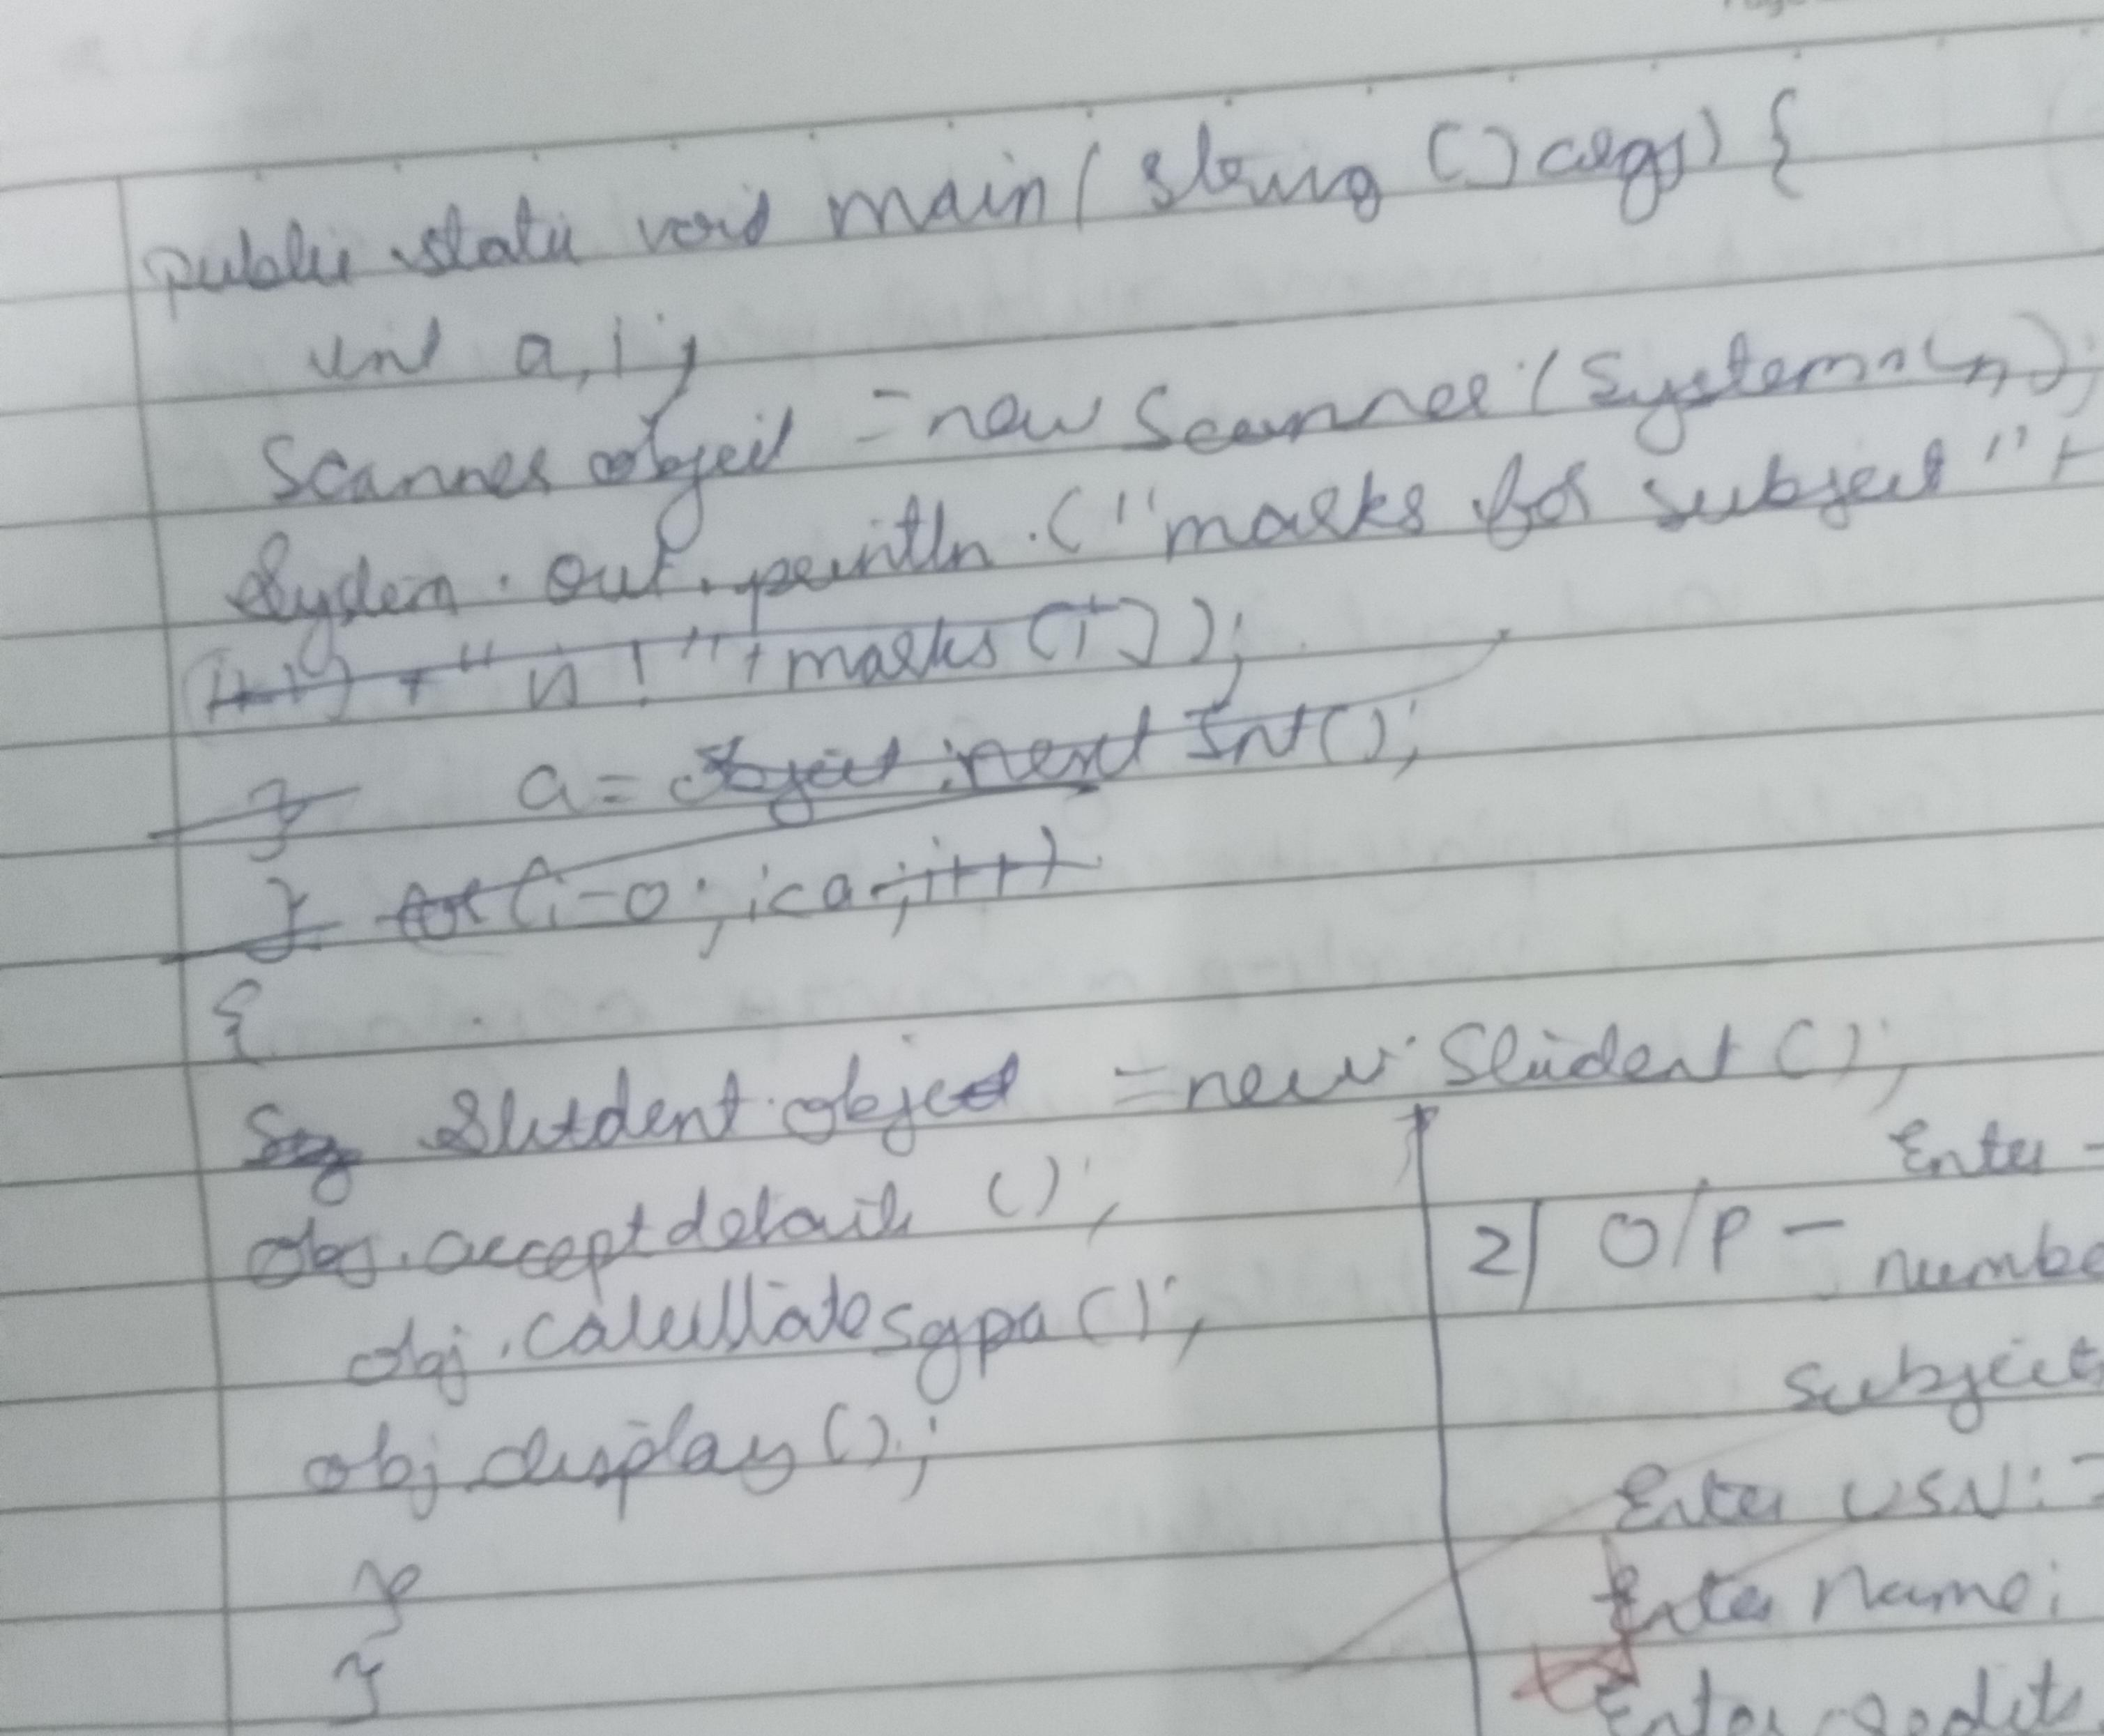 public static void main(String [] args) {
int a, i;
Scanner object = new Scanner (System.in);
System.out.println.("marks for subject "+
(i+1) + " n ! "+marks[i]);
} a= object.next Int();
} for(i=0; i<a; i++)
{
Student object = new Student ();
obj.acceptdetails ();
obj.calculatesgpa();
obj display();
}
}
Enter -
2) O/P -
numbe
subject
Enter USN: -
Enter name:
Enter credits